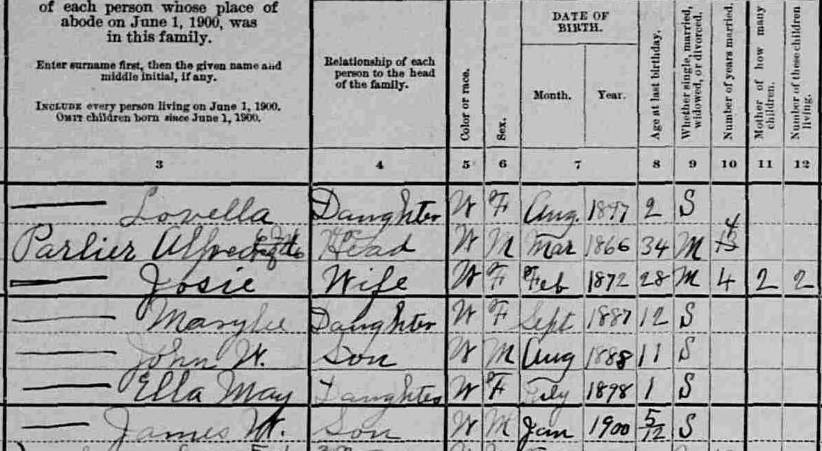 of each person whose place of
abode on June 1, 1900, was
in this family.
Enter surname first, then the given name and
middle initial, if any.
INCLUDE every person living on June 1, 1900.
OMIT children born since June 1, 1900.
Relationship of each
person to the head
of the family.
Color or race.
Sex.
DATE OF
BIRTH.
Month. Year.
Age at last birthday.
Whether single, married,
widowed, or divorced.
Number of years married.
Mother of how many
children.
Number of these children
living.
3 4 5 6 7 8 9 10 11 12
— Lovella Daughter W F Aug. 1897 2 S
Parlier Alfred Head W M Mar 1866 34 M 4
— Josie Wife W F Feb 1872 28 M 4 2 2
— Marylee Daughter W F Sept 1887 12 S
— John W. Son W M Aug 1888 11 S
— Ella May Daughter W F July 1898 1 S
— James W. Son W M Jan 1900 5/12 S